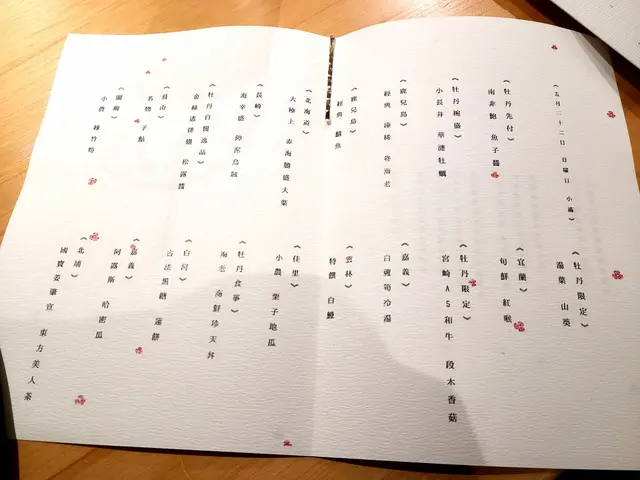 五月二十二日 日曜日 小滿
《牡丹先付》
南非鮑 魚子醬
《牡丹椀盛》
小長井 華謎牡蠣
《鹿兒島》
經典 棒棒 卷海老
《鹿兒島》
經典 鱚魚
《北海道》
大極上 赤海膽盛大葉
《長崎》
海幸盛 障泥烏賊
《牡丹自慢逸品》
金絲透排翅 松露醬
《員山》
名物 子鮎
《關廟》
小農 綠竹筍
《牡丹限定》
湯葉 山葵
《宜蘭》
旬鮮 紅喉
《牡丹限定》
宮崎A5和牛 段木香菇
《嘉義》
白蘆筍冷湯
《雲林》
特饌 白鰻
《佳里》
小農 栗子地瓜
《牡丹食事》
海老 海鮮珍天丼
《白河》
古法黑糖 蓮餅
《嘉義》
阿露斯 哈密瓜
《北埔》
國寶姜肇宣 東方美人茶